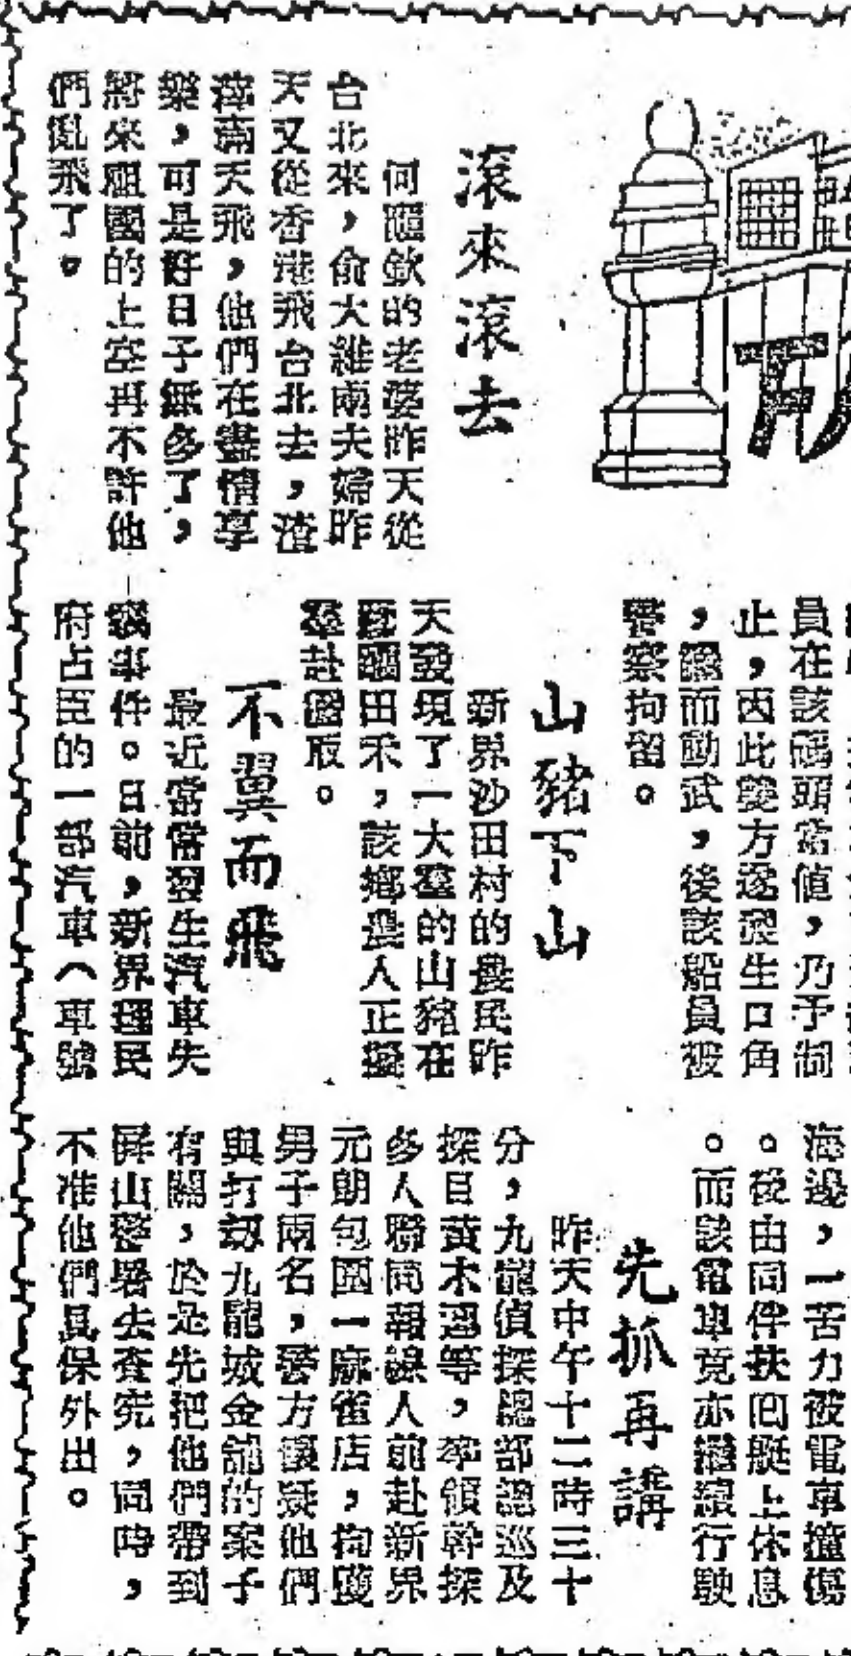 滾來滾去
何應欽的老婆昨天從
台北來，俞大維兩夫婦昨
天又從香港飛台北去，渣
滓滿天飛，他們在盡情享
樂，可是好日子無多了，
將來祖國的上空再不許他
們亂飛了。
員在該碼頭當值，乃予制
止，因此雙方遂發生口角
，繼而動武，後該船員被
警察拘留。
山豬下山
新界沙田村的農民昨
天發現了一大羣的山豬在
田禾，該鄉農人正擬
羣赴獵取。
不翼而飛
最近常常發生汽車失
竊事件。日前，新界理民
府占臣的一部汽車（車號
海邊，一苦力被電車撞傷
。後由同伴扶回艇上休息
。而該電車竟亦繼續行駛
先抓再講
昨天中午十二時三十
分，九龍偵探總部總巡及
探目黃木運等，率領幹探
多人聯同報線人前赴新界
元朗包圍一麻雀店，拘獲
男子兩名，警方懷疑他們
與打刧九龍城金舖的案子
有關，於是先把他們帶到
屏山警署去查究，同時，
不准他們具保外出。